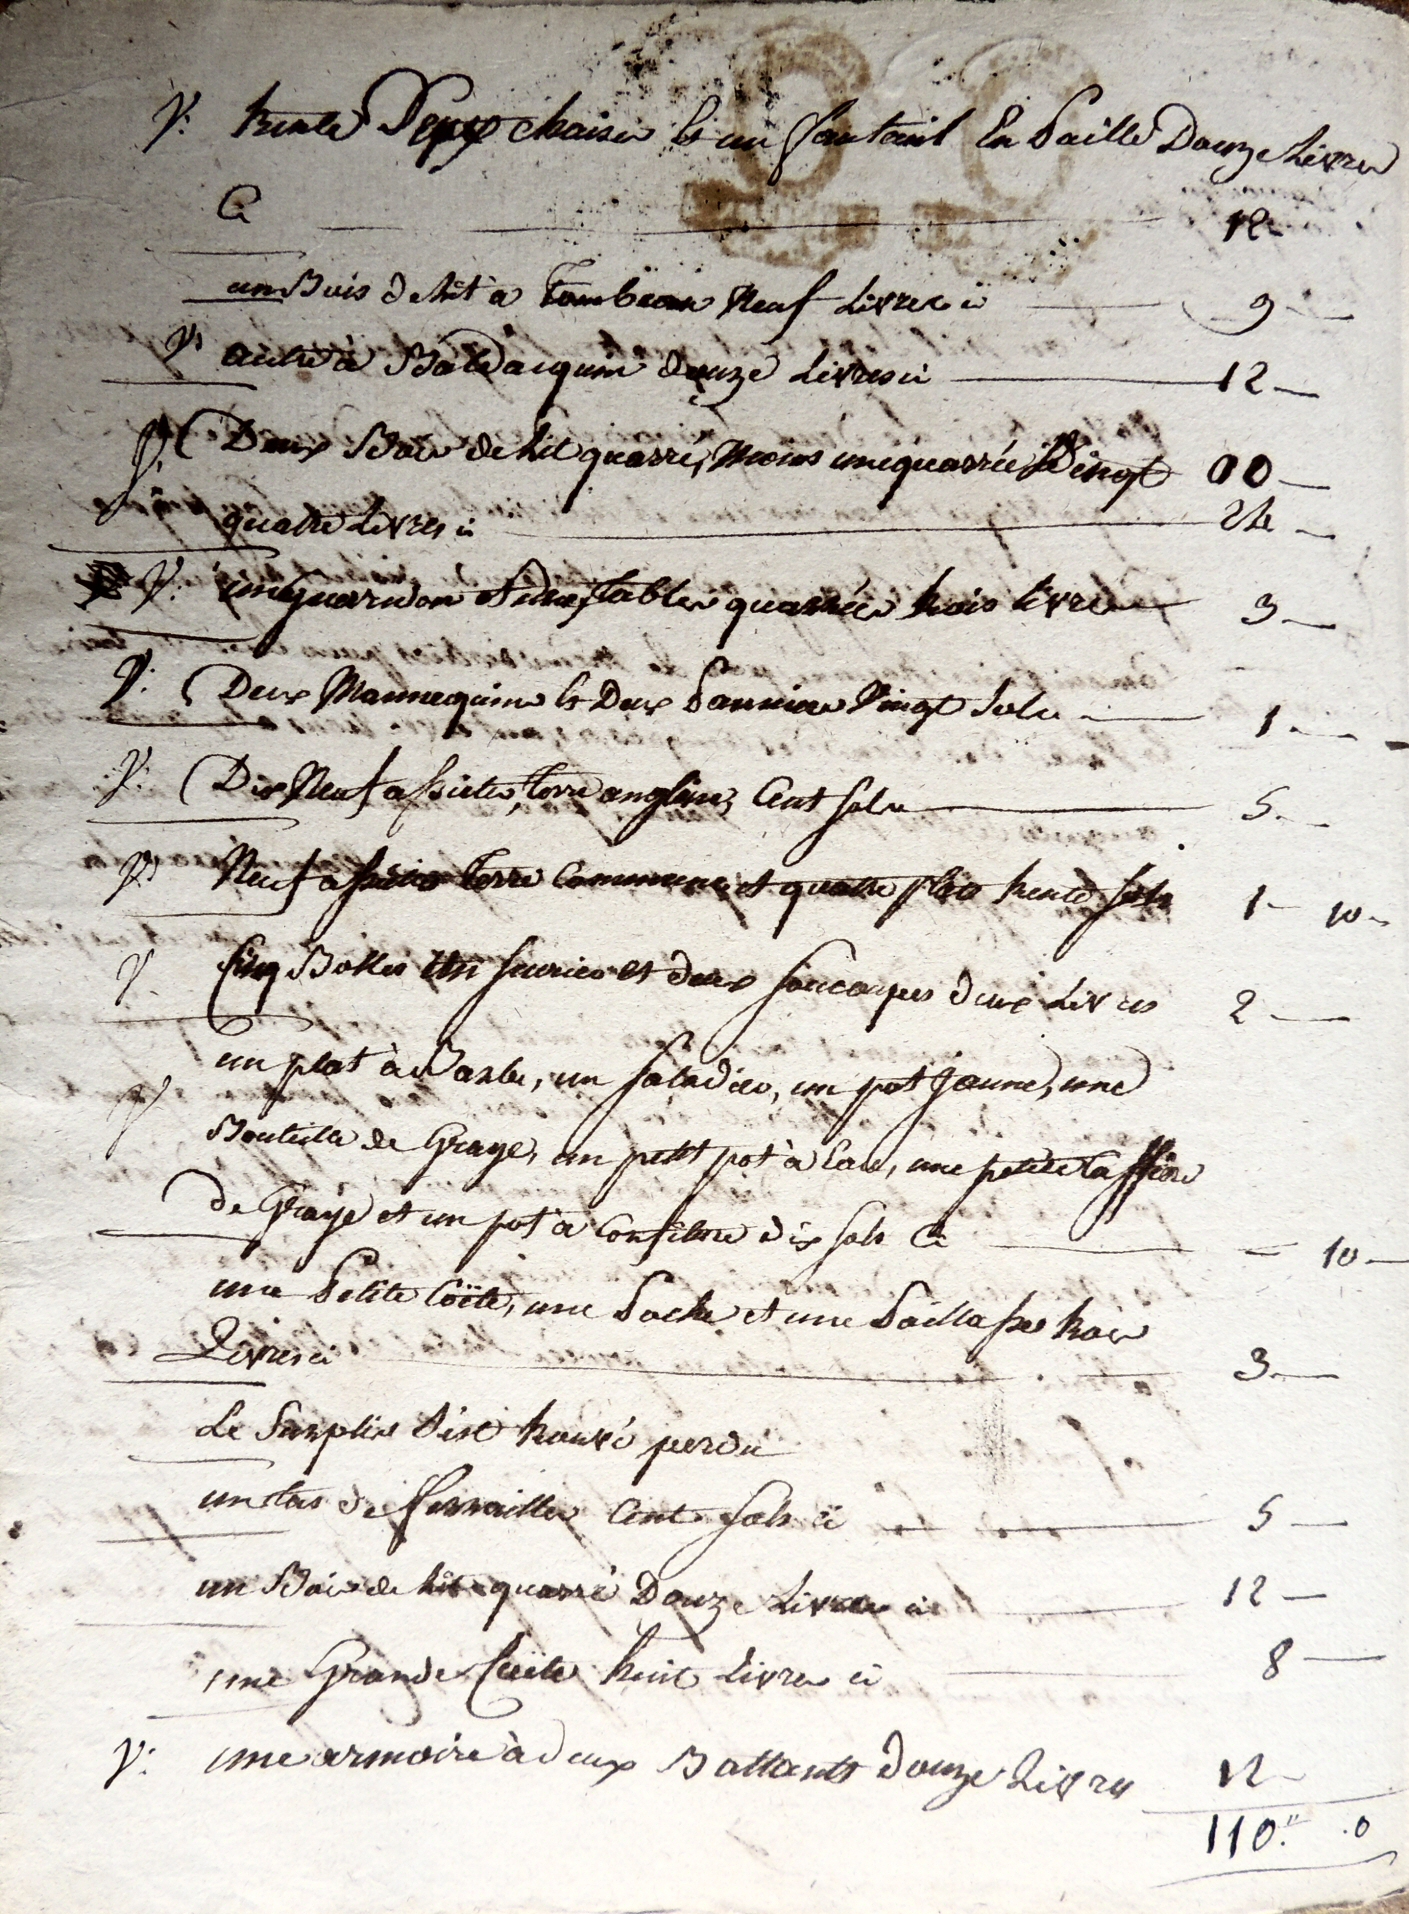 V. trente Deux chaises & un fauteuil En Paille Douze Livres
Ci 12
un Bois de Lit à Tombeau Neuf Livres ci 9
V. autre à Baldaquin douze Livres ci 12
V. Deux Bois de Lit quarré, moins un quarré Vingt 00
quatre Livres ci 24
V. un Gueridon et deux tables quarrées trois livres 3
V. Deux Mannequins & Deux Panniers Vingt Sols 1
V. Dix Neuf assiettes, terre anglaise, Cent sols 5
V. Neuf assiettes terre Commune et quatre plats trente sols 1 10
V. Cinq Bolles un sucrier et deux soucoupes deux Livres 2
V. un plat à Barbe, un saladier, un pot jaune, une
Bouteille de Graye, un petit pot à Eau, une petite Caffetiere
de Graye et un pot à Confiture dix sols Ci 10
une Petite Coëte, une Poche et une Paillasse trois
Livres ci 3
Le Surplis s'est trouvé perdu
un tas de ferrailles Cent sols ci 5
un Bois de Lit quarré Douze Livres ci 12
une Grande Coëte huit Livres ci 8
V. une armoire à deux Battants douze Livres 12
110. " .0